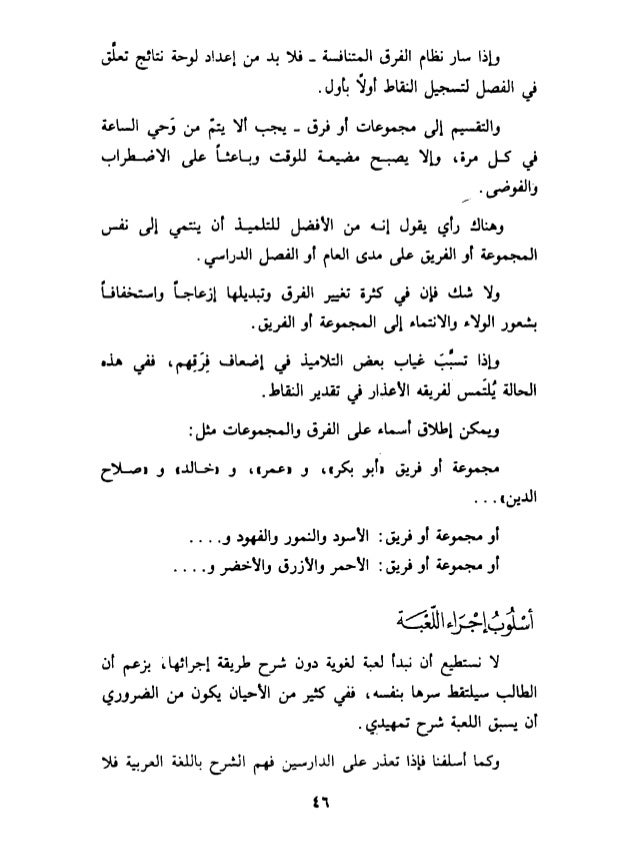 وإذا سار نظام الفرق المتنافسة ـ فلا بد من إعداد لوحة نتائج تعلَّق
في الفصل لتسجيل النقاط أولاً بأول.
والتقسيم إلى مجموعات أو فرق ـ يجب ألا يتمّ من وَحي الساعة
في كل مرة، وإلا يصبح مضيعة للوقت وباعثاً على الاضطراب
والفوضى.
وهناك رأي يقول إنه من الأفضل للتلميذ أن ينتمي إلى نفس
المجموعة أو الفريق على مدى العام أو الفصل الدراسي.
ولا شك فإن في كثرة تغيير الفرق وتبديلها إزعاجاً واستخفافاً
بشعور الولاء والانتماء إلى المجموعة أو الفريق.
وإذا تسبَّبَ غياب بعض التلاميذ في إضعاف فِرَقِهم، ففي هذه
الحالة يُلتَمس لفريقه الأعذار في تقدير النقاط.
ويمكن إطلاق أسماء على الفرق والمجموعات مثل:
مجموعة أو فريق «أبو بكر»، و «عمر»، و «خالد» و «صلاح
الدين»...
أو مجموعة أو فريق: الأسود والنمور والفهود و....
أو مجموعة أو فريق: الأحمر والأزرق والأخضر و....
أُسْلُوبُ إِجْرَاء اللُّعْبَة
لا نستطيع أن نبدأ لعبة لغوية دون شرح طريقة إجرائها، بزعم أن
الطالب سيلتقط سرها بنفسه، ففي كثير من الأحيان يكون من الضروري
أن يسبق اللعبة شرح تمهيدي.
وكما أسلفنا فإذا تعذر على الدارسين فهم الشرح باللغة العربية فلا
٤٦